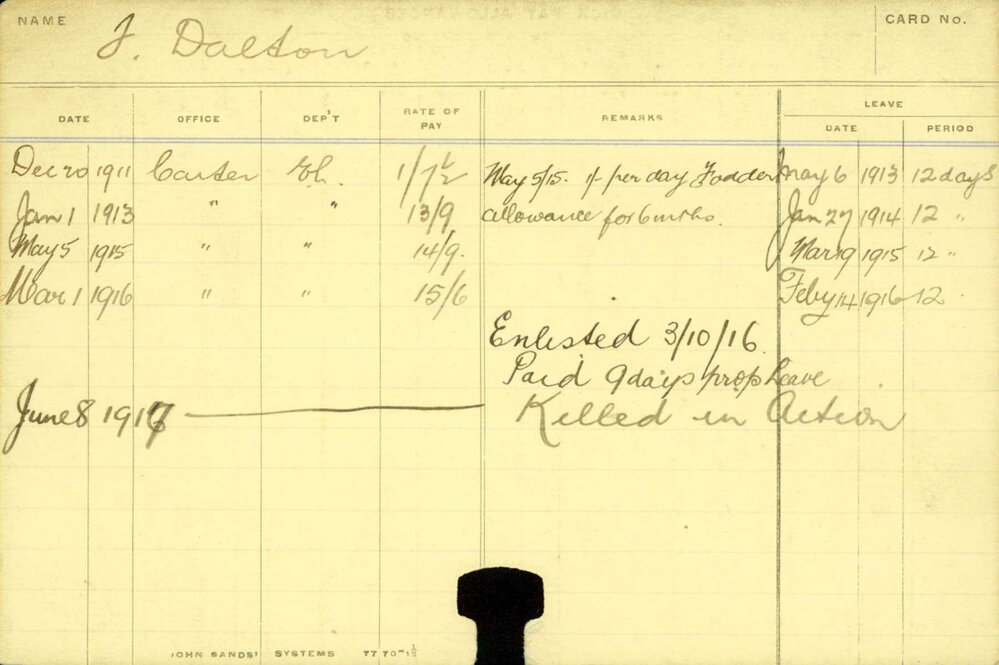 NAME J. Dalton CARD No.
LEAVE
DATE OFFICE DEP'T RATE OF PAY REMARKS DATE PERIOD
Dec 20 1911 Carter 1/7½ May 5/15. 1/- per day Fodder May 6 1913 12 days
Jan 1 1913 " " 13/9 allowance for 6 mths. Jan 27 1914 12 "
May 5 1915 " " 14/9. Mar 19 1915 12 "
Mar 1 1916 " " 15/6 Feby 14 1916 12
Enlisted 3/10/16
Paid 9 days prop Leave
June 8 1917 Killed in Action
JOHN SANDS' SYSTEMS